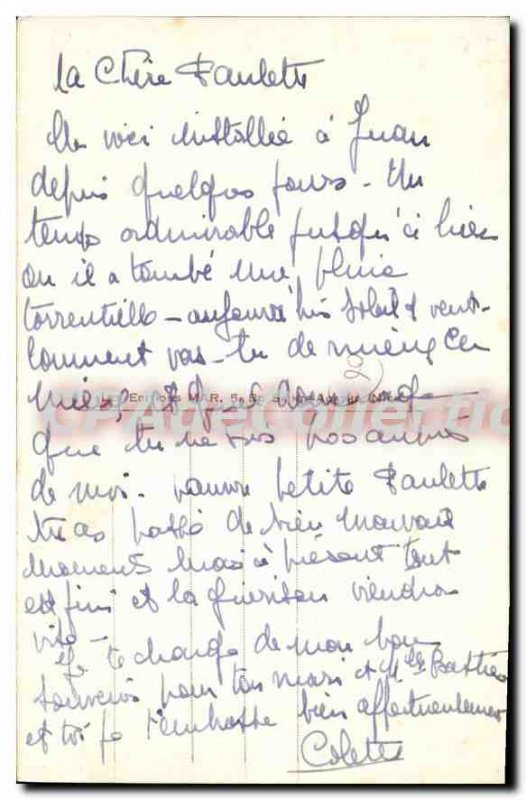 Ma Chère Paulette
Me voici installée à Juan
depuis quelques jours - Un
temps admirable jusqu'à hier
ou il a tombé une pluie
torrentielle - aujourd'hui soleil & vent -
Comment vas-tu de mieux en
mieux, et quel dommage
que tu ne sois pas auprès
de moi. pauvre petite Paulette
tu as passé de bien mauvais
moments mais à présent tout
est fini et la guérison viendra
vite -
Je te charge de mon bon
souvenir pour ton mari et
et toi je t'embrasse bien affectueusement
Colette
Editions MAR, Nice
CPA de Collection